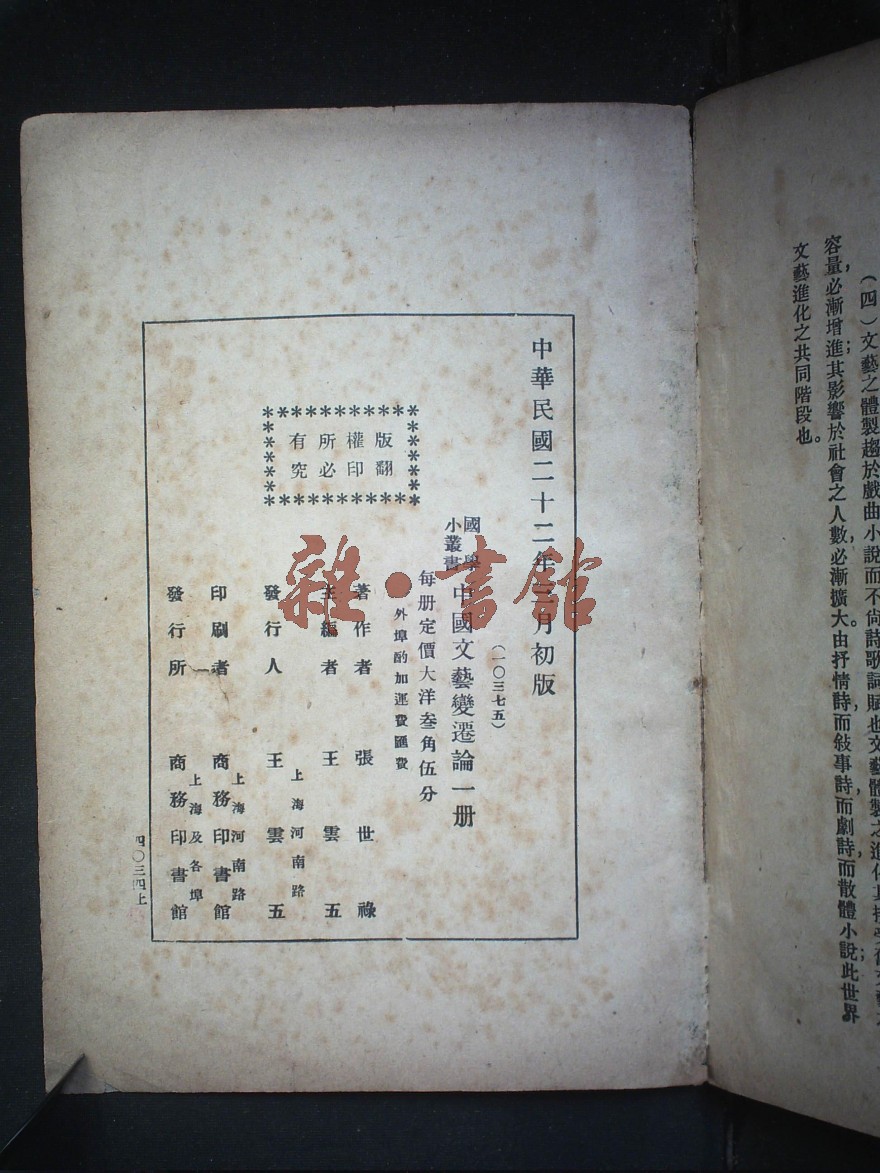 (四)文藝之體製趨於戲曲小說而不尚詩歌詞賦也文藝體製之進化其
容量,必漸增進;其影響於社會之人數必漸擴大。由抒情詩,而敍事詩,而劇詩,而散體小說;此世界
文藝進化之共同階段也。
中華民國二十二年 月初版
(一〇三七五)
國學小叢書 中國文藝變遷論一册
每册定價大洋叁角伍分
外埠酌加運費匯費
版權所有
翻印必究
著作者 張世祿
主編者 王雲五
上海河南路
發行人 王雲五
上海河南路
印刷者 商務印書館
上海及各埠
發行所 商務印書館
四〇三四上
雜·書館